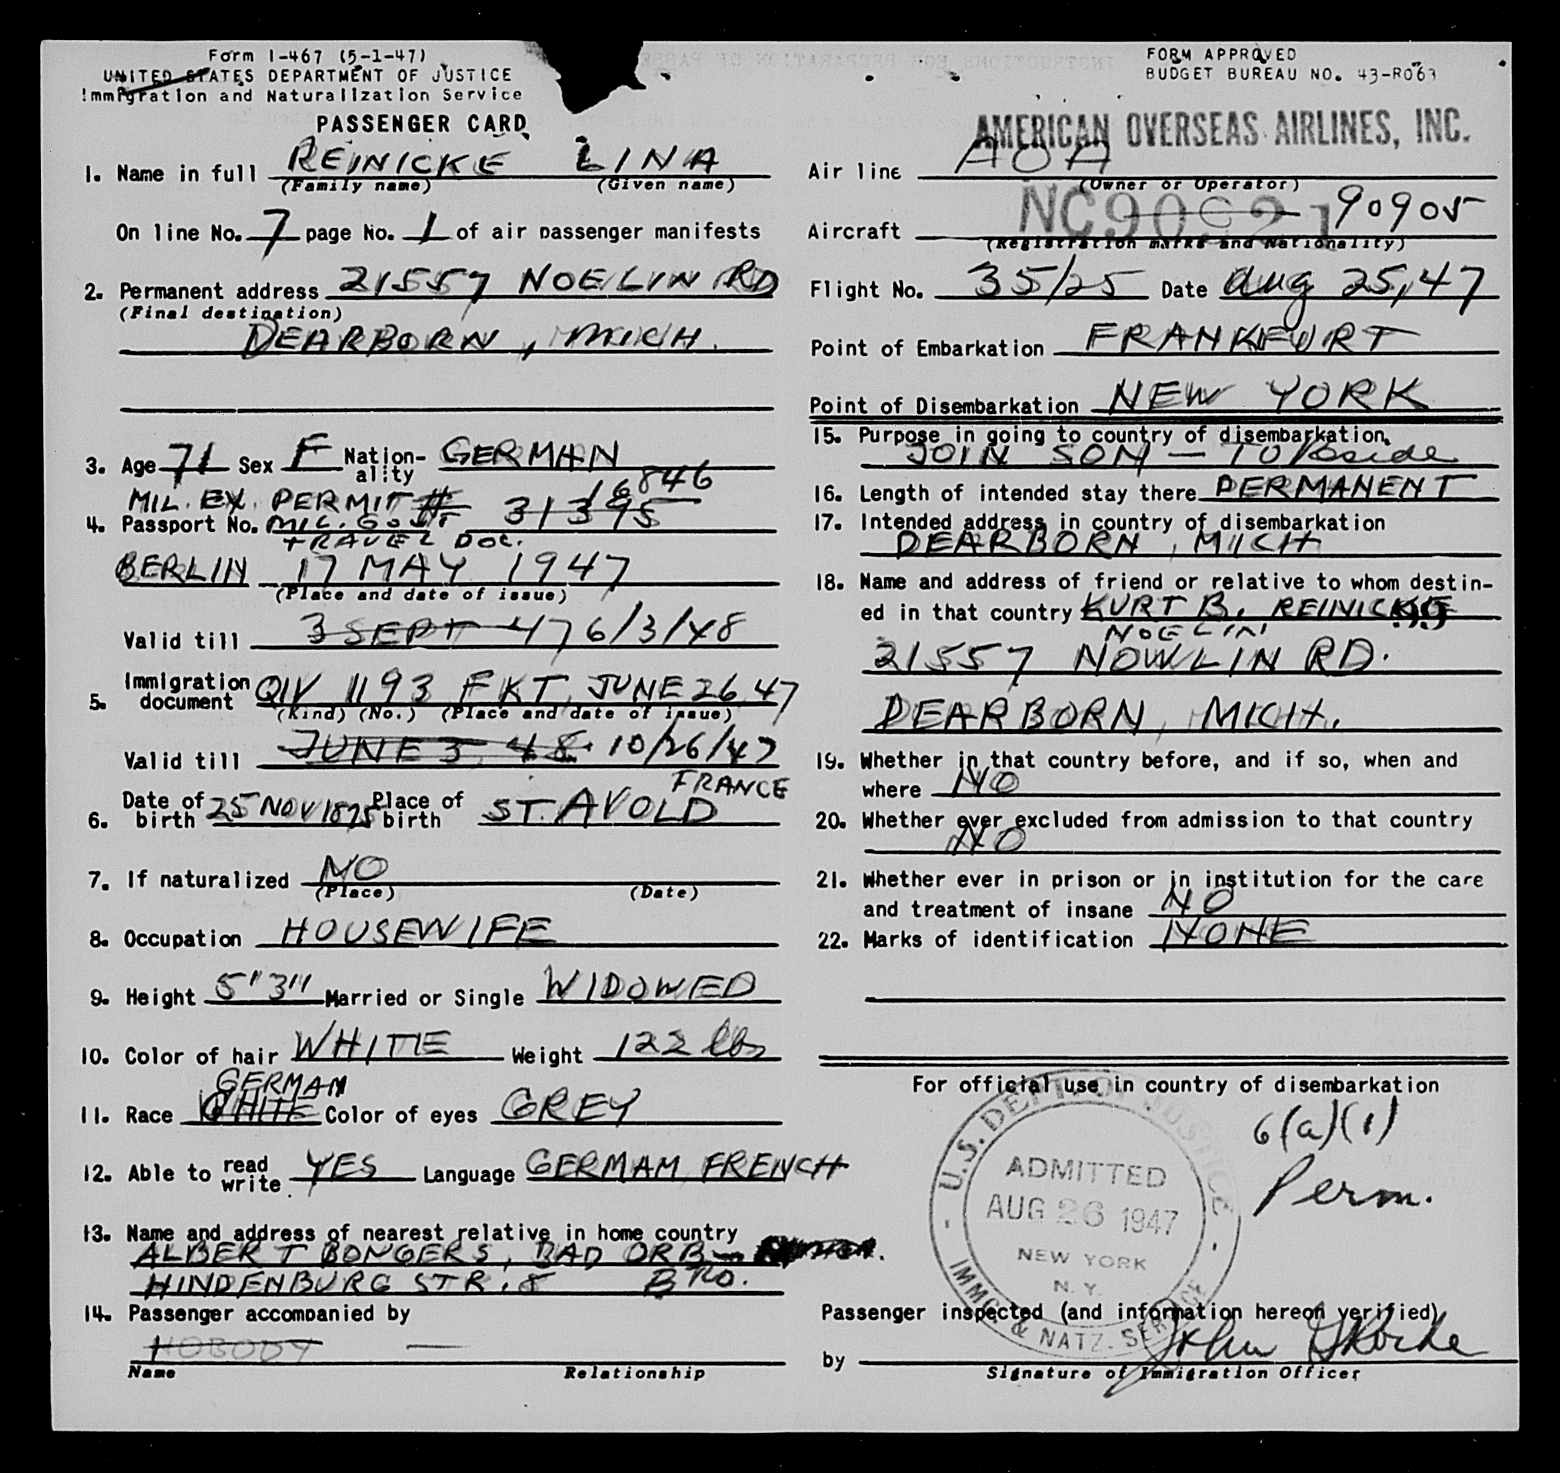 Form I-467 (5-1-47)
UNITED STATES DEPARTMENT OF JUSTICE
Immigration and Naturalization Service
PASSENGER CARD
1. Name in full REINICKE LINA
(Family name) (Given name)
On line No. 7 page No. 1 of air passenger manifests
2. Permanent address 21557 NOELIN RD
(Final destination)
DEARBORN, MICH.
3. Age 71 Sex F Nation-ality GERMAN
MIL. EX. PERMIT # 16846
4. Passport No. MIL. GOVT 31395
TRAVEL DOC.
BERLIN 17 MAY 1947
(Place and date of issue)
Valid till 3 SEPT 47 6/3/48
5. Immigration document QIV 1193 FKT, JUNE 26, 47
(Kind) (No.) (Place and date of issue)
Valid till JUNE 3, 48. 10/26/47
FRANCE
6. Date of birth 25 NOV 1875 Place of birth ST. AVOLD
7. If naturalized NO
(Place) (Date)
8. Occupation HOUSEWIFE
9. Height 5"3" Married or Single WIDOWED
10. Color of hair WHITE Weight 122 lbs
GERMAN
11. Race WHITE Color of eyes GREY
12. Able to read write YES Language GERMAM, FRENCH
13. Name and address of nearest relative in home country
ALBERT BONGERS, BAD ORB
HINDENBURG STR. 8 BRO.
14. Passenger accompanied by
NOBODY —
Name Relationship
FORM APPROVED
BUDGET BUREAU NO. 43-R063
AMERICAN OVERSEAS AIRLINES, INC.
Air line AOA
(Owner or Operator)
Aircraft NC90921 90905
(Registration marks and Nationality)
Flight No. 35/25 Date Aug 25, 47
Point of Embarkation FRANKFURT
Point of Disembarkation NEW YORK
15. Purpose in going to country of disembarkation
JOIN SON — TO Reside
16. Length of intended stay there PERMANENT
17. Intended address in country of disembarkation
DEARBORN, MICH
18. Name and address of friend or relative to whom destin-
ed in that country KURT B. REINICKE
NOELIN
21557 NOWLIN RD.
DEARBORN, MICH.
19. Whether in that country before, and if so, when and
where NO
20. Whether ever excluded from admission to that country
NO
21. Whether ever in prison or in institution for the care
and treatment of insane NO
22. Marks of identification NONE
For official use in country of disembarkation
6(a)(1)
Perm.
U.S. DEPT. OF JUSTICE
ADMITTED
AUG 26 1947
NEW YORK
N. Y.
IMMG. & NATZ. SERVICE
Passenger inspected (and information hereon verified)
by John
Signature of Immigration Officer